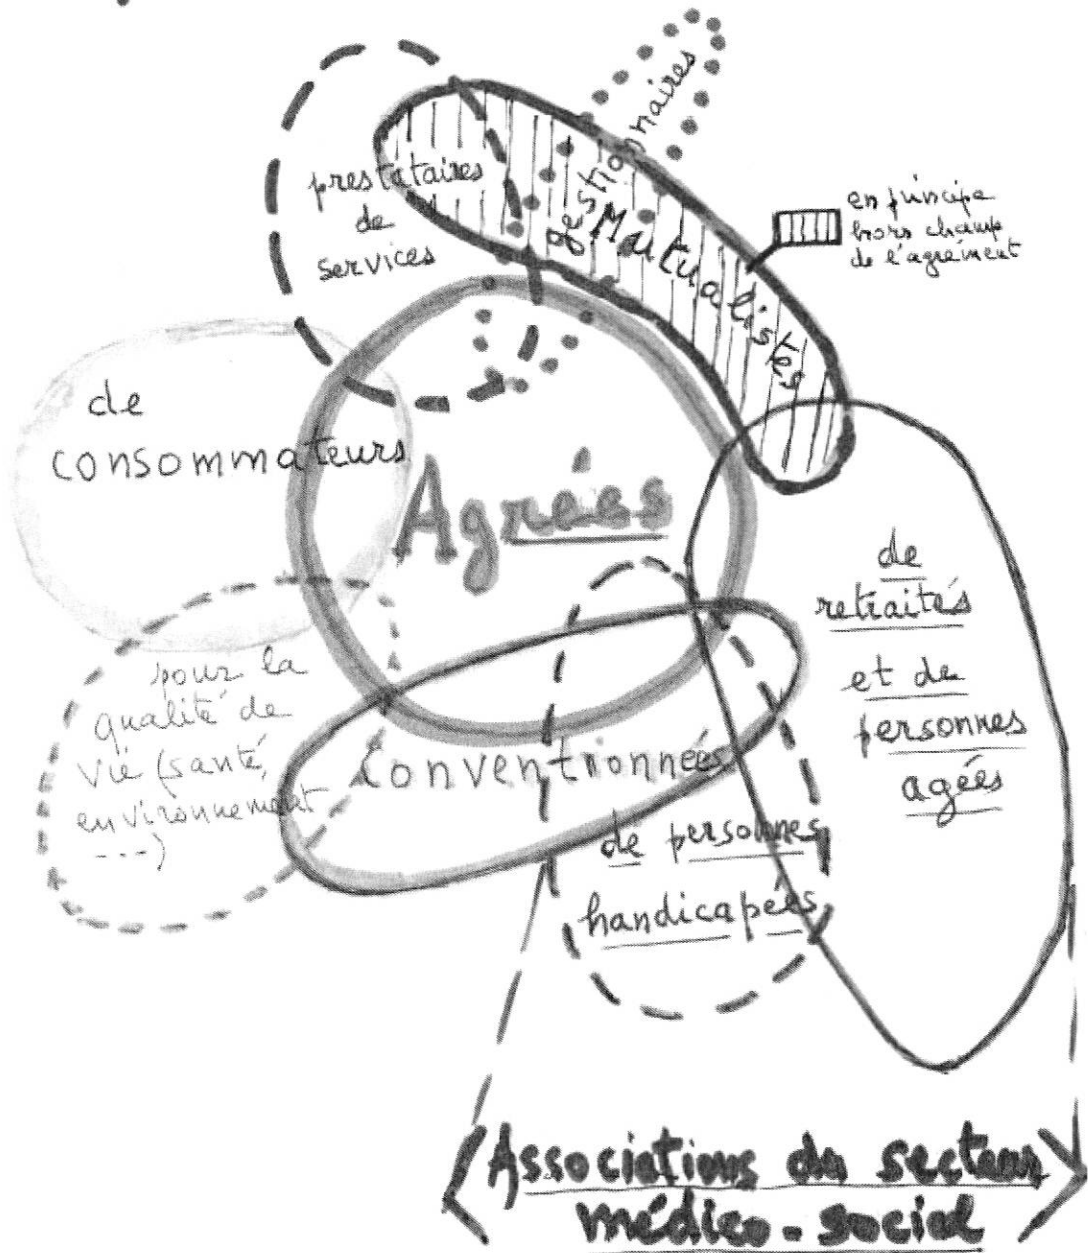 gestionnaires
prestataires
de
services
Mutualistes
en principe
hors champ
de l'agrément
de
consommateurs
Agréés
de
retraités
et de
personnes
agées
pour la
qualité de
vie (santé,
environnement
---)
Conventionnées
de personnes
handicapées
<Associations du secteur
médico-social>